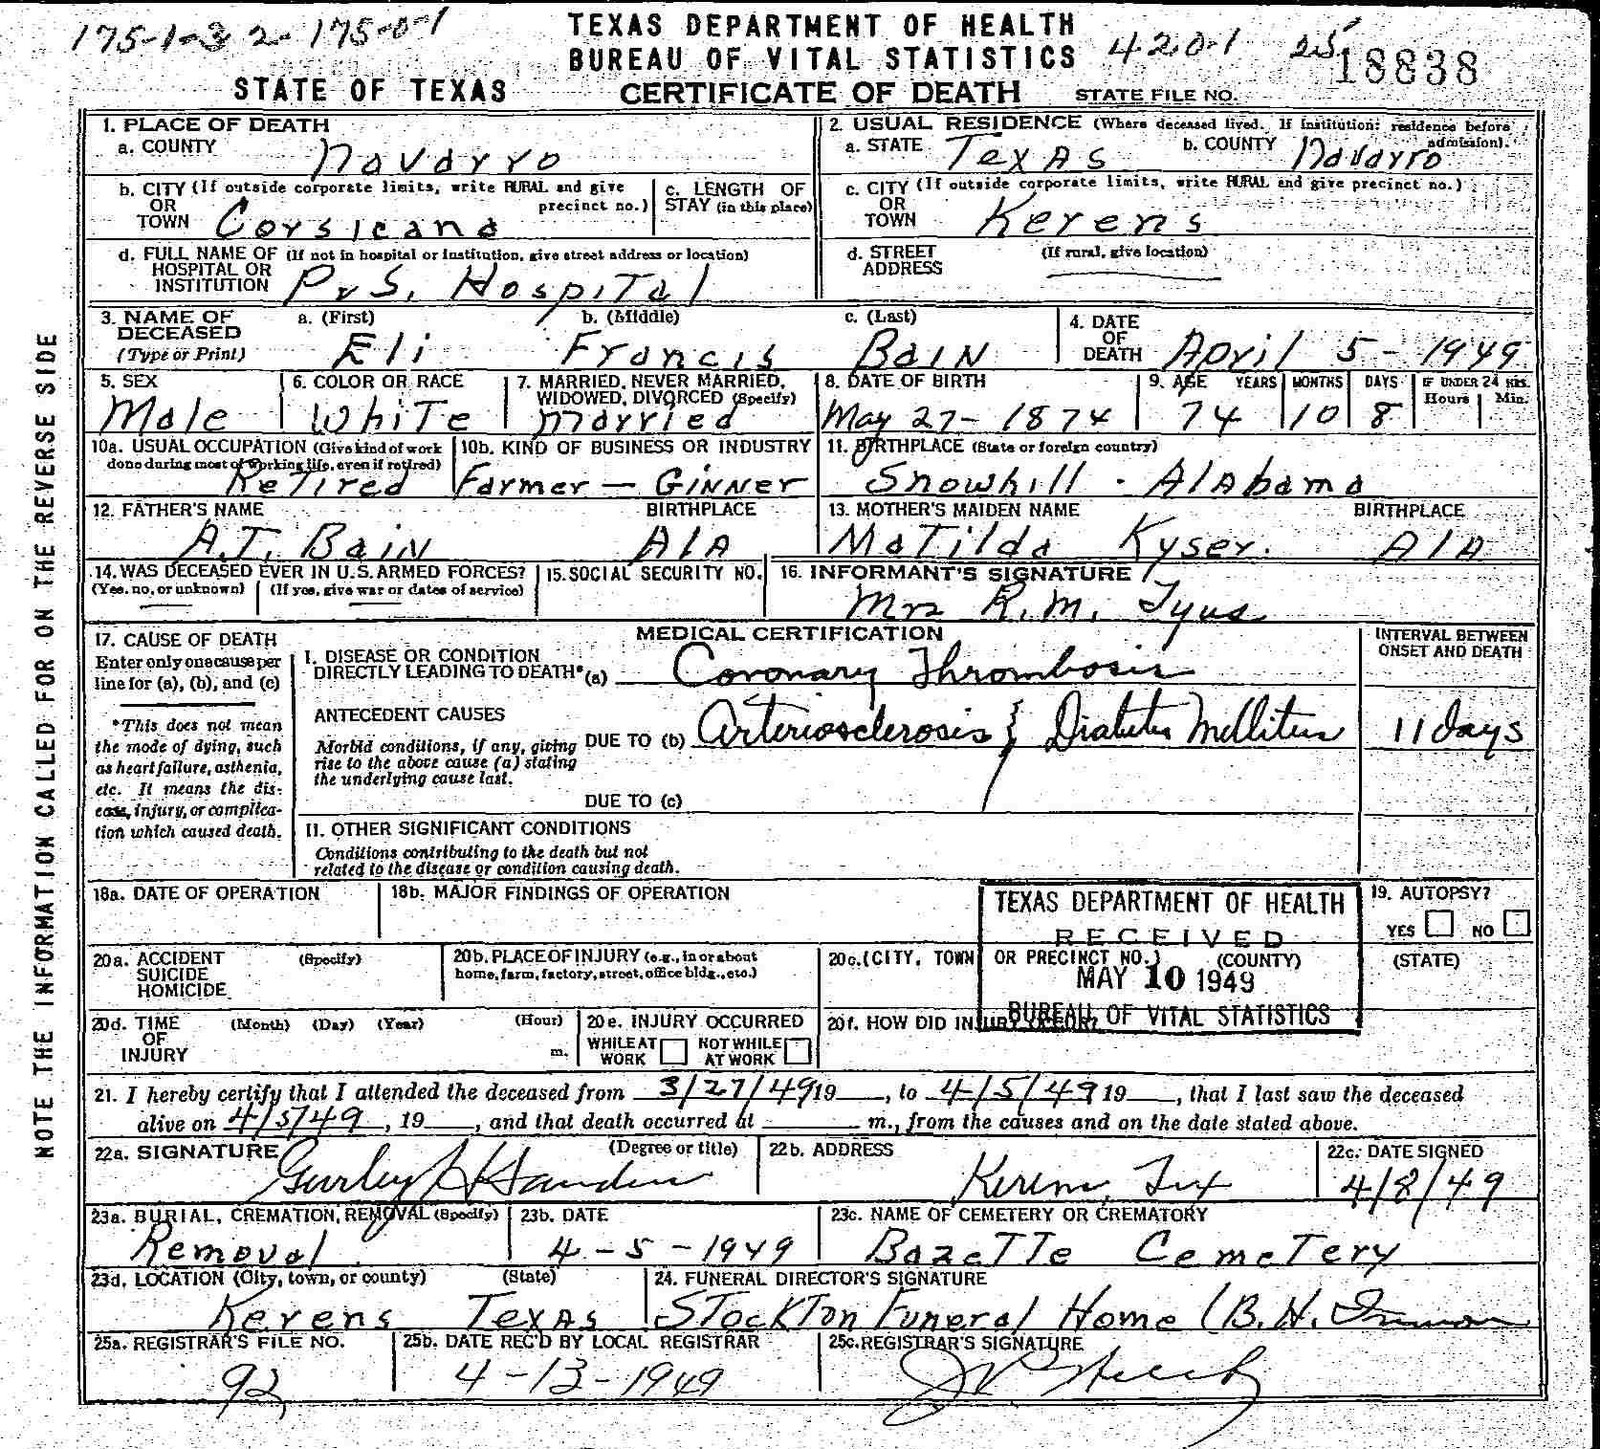 175-1-3 2- 175-0-1
TEXAS DEPARTMENT OF HEALTH
BUREAU OF VITAL STATISTICS
420-1 25 18838
STATE OF TEXAS CERTIFICATE OF DEATH STATE FILE NO.
1. PLACE OF DEATH
a. COUNTY Navarro
2. USUAL RESIDENCE (Where deceased lived. If institution: residence before admission).
a. STATE Texas b. COUNTY Navarro
b. CITY (If outside corporate limits, write RURAL and give precinct no.)
OR
TOWN Corsicana
c. LENGTH OF
STAY (in this place)
c. CITY (If outside corporate limits, write RURAL and give precinct no.)
OR
TOWN Kerens
d. FULL NAME OF (If not in hospital or institution, give street address or location)
HOSPITAL OR
INSTITUTION P&S. Hospital
d. STREET (If rural, give location)
ADDRESS
3. NAME OF DECEASED
(Type or Print)
a. (First) b. (Middle) c. (Last)
Eli Francis Bain
4. DATE OF DEATH April 5 - 1949
5. SEX
Male
6. COLOR OR RACE
White
7. MARRIED, NEVER MARRIED,
WIDOWED, DIVORCED (Specify)
Married
8. DATE OF BIRTH
May 27- 1874
9. AGE YEARS MONTHS DAYS IF UNDER 24 HRS.
Hours Min.
74 10 8
10a. USUAL OCCUPATION (Give kind of work
done during most of working life, even if retired)
Retired
10b. KIND OF BUSINESS OR INDUSTRY
Farmer — Ginner
11. BIRTHPLACE (State or foreign country)
Snowhill - Alabama
12. FATHER'S NAME BIRTHPLACE
A.T. Bain Ala
13. MOTHER'S MAIDEN NAME BIRTHPLACE
Matilda Kyser. Ala
14. WAS DECEASED EVER IN U.S. ARMED FORCES?
(Yes, no, or unknown) (If yes, give war or dates of service)
15. SOCIAL SECURITY NO.
16. INFORMANT'S SIGNATURE
Mrs R.M. Tyus
17. CAUSE OF DEATH
Enter only one cause per
line for (a), (b), and (c)
*This does not mean
the mode of dying, such
as heart failure, asthenia,
etc. It means the dis-
ease, injury, or complica-
tion which caused death.
MEDICAL CERTIFICATION
INTERVAL BETWEEN
ONSET AND DEATH
I. DISEASE OR CONDITION
DIRECTLY LEADING TO DEATH* (a) Coronary Thrombosis
ANTECEDENT CAUSES
Morbid conditions, if any, giving
rise to the above cause (a) stating
the underlying cause last.
DUE TO (b) Arteriosclerosis } Diabetes Mellitus 11 days
DUE TO (c)
II. OTHER SIGNIFICANT CONDITIONS
Conditions contributing to the death but not
related to the disease or condition causing death.
18a. DATE OF OPERATION
18b. MAJOR FINDINGS OF OPERATION
19. AUTOPSY?
YES NO
TEXAS DEPARTMENT OF HEALTH
RECEIVED
MAY 10 1949
BUREAU OF VITAL STATISTICS
20a. ACCIDENT (Specify)
SUICIDE
HOMICIDE
20b. PLACE OF INJURY (e.g., in or about
home, farm, factory, street, office bldg., etc.)
20c. (CITY, TOWN OR PRECINCT NO.) (COUNTY) (STATE)
20d. TIME (Month) (Day) (Year) (Hour)
OF
INJURY m.
20e. INJURY OCCURRED
WHILE AT WORK NOT WHILE AT WORK
20f. HOW DID INJURY OCCUR?
21. I hereby certify that I attended the deceased from 3/27/49 19, to 4/5/49 19, that I last saw the deceased
alive on 4/5/49, 19, and that death occurred at m., from the causes and on the date stated above.
22a. SIGNATURE (Degree or title)
Gurley H Sanders
22b. ADDRESS
Kerens, Tex
22c. DATE SIGNED
4/8/49
23a. BURIAL, CREMATION, REMOVAL (Specify)
Removal
23b. DATE
4-5-1949
23c. NAME OF CEMETERY OR CREMATORY
Bazette Cemetery
23d. LOCATION (City, town, or county) (State)
Kerens Texas
24. FUNERAL DIRECTOR'S SIGNATURE
Stockton Funeral Home (B.H. Inmon
25a. REGISTRAR'S FILE NO.
92
25b. DATE REC'D BY LOCAL REGISTRAR
4-13-1949
25c. REGISTRAR'S SIGNATURE
NOTE THE INFORMATION CALLED FOR ON THE REVERSE SIDE